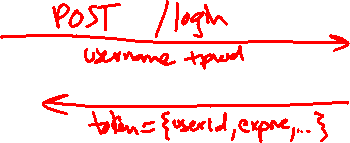 POST /login
username + pwd
token = {userId, expire, ...}